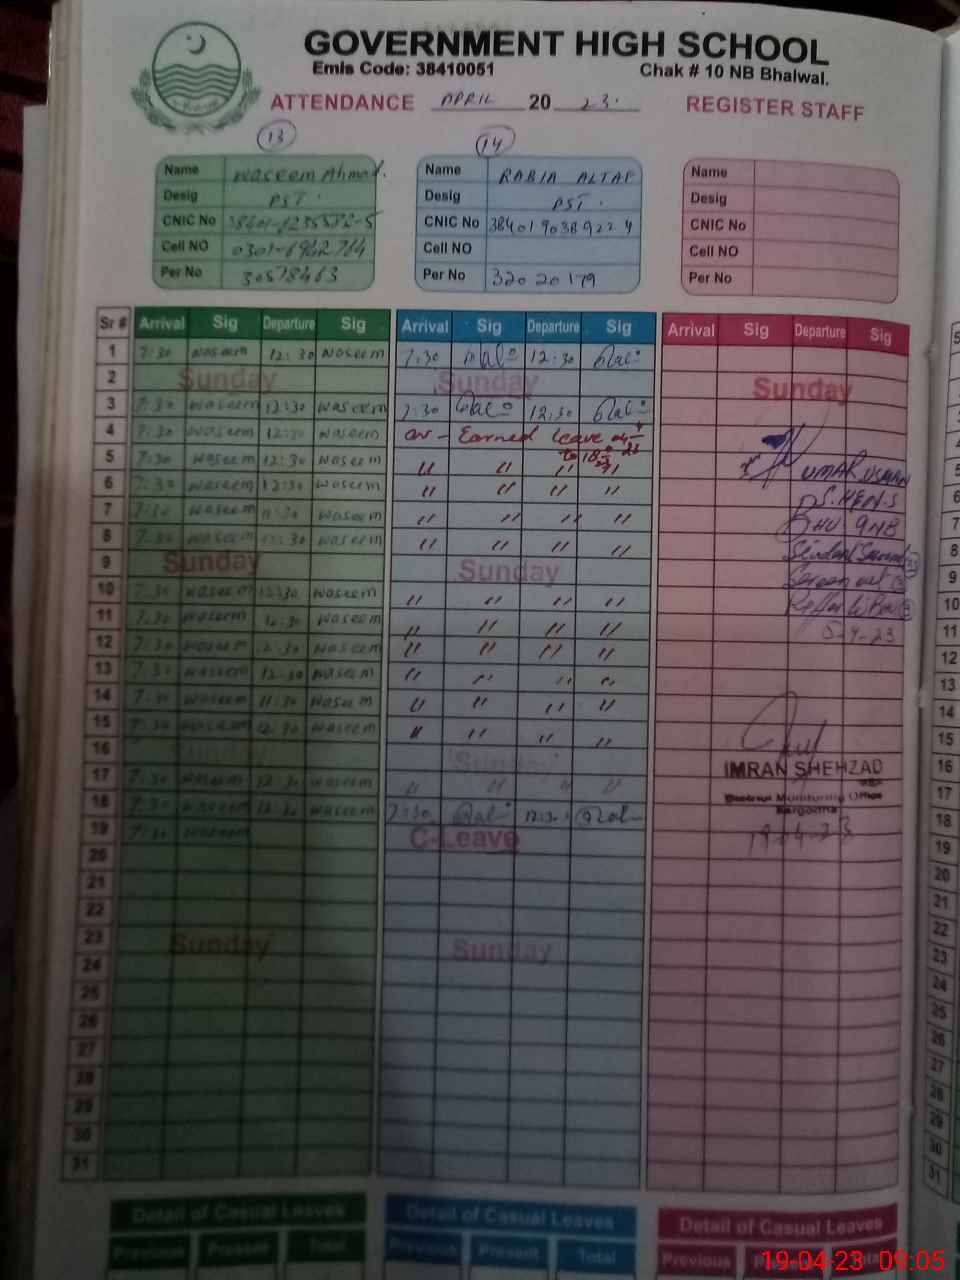 GOVERNMENT HIGH SCHOOL
Emis Code: 38410051 Chak # 10 NB Bhalwal.
ATTENDANCE APRIL 20 23. REGISTER STAFF
13 14
Name Waseem Ahmad. Name RABIA ALTAF Name
Desig PST. Desig PST. Desig
CNIC No CNIC No 3840190389224 CNIC No
Cell NO 0301-6962764 Cell NO Cell NO
Per No 30578463 Per No 32020179 Per No
Sr # Arrival Sig Departure Sig Arrival Sig Departure Sig Arrival Sig Departure Sig
1 7:30 waseem 12:30 waseem 7:30 12:30
2 Sunday Sunday Sunday
3 7:30 waseem 12:30 waseem 7:30 12:30
4 7:30 waseem 12:30 waseem on - Earned leave
5 7:30 waseem 12:30 waseem " " " " UMAR USMAN
6 7:30 waseem 12:30 waseem " " " " S.H&N.S
7 7:30 waseem 11:30 waseem " " " " BHU 9NB
8 7:30 waseem 12:30 waseem " " " "
9 Sunday Sunday
10 7:30 waseem 12:30 waseem " " " "
11 7:30 waseem 12:30 waseem " " " " 5-4-23
12 7:30 waseem 12:30 waseem " " " "
13 7:30 waseem 12:30 waseem " " " "
14 7:30 waseem 11:30 waseem " " " "
15 7:30 waseem 12:30 waseem " " " "
16 Sunday Sunday IMRAN SHEHZAD
17 7:30 waseem 12:30 waseem " " " " District Monitoring Officer
18 7:30 waseem 12:30 waseem 7:30 12:30 Sargodha
19 7:30 waseem C-Leave 19-4-23
20
21
22
23 Sunday Sunday
24
25
26
27
28
29
30
31
Detail of Casual Leaves Detail of Casual Leaves Detail of Casual Leaves
Previous Present Total Previous Present Total Previous
19-04-23 09:05